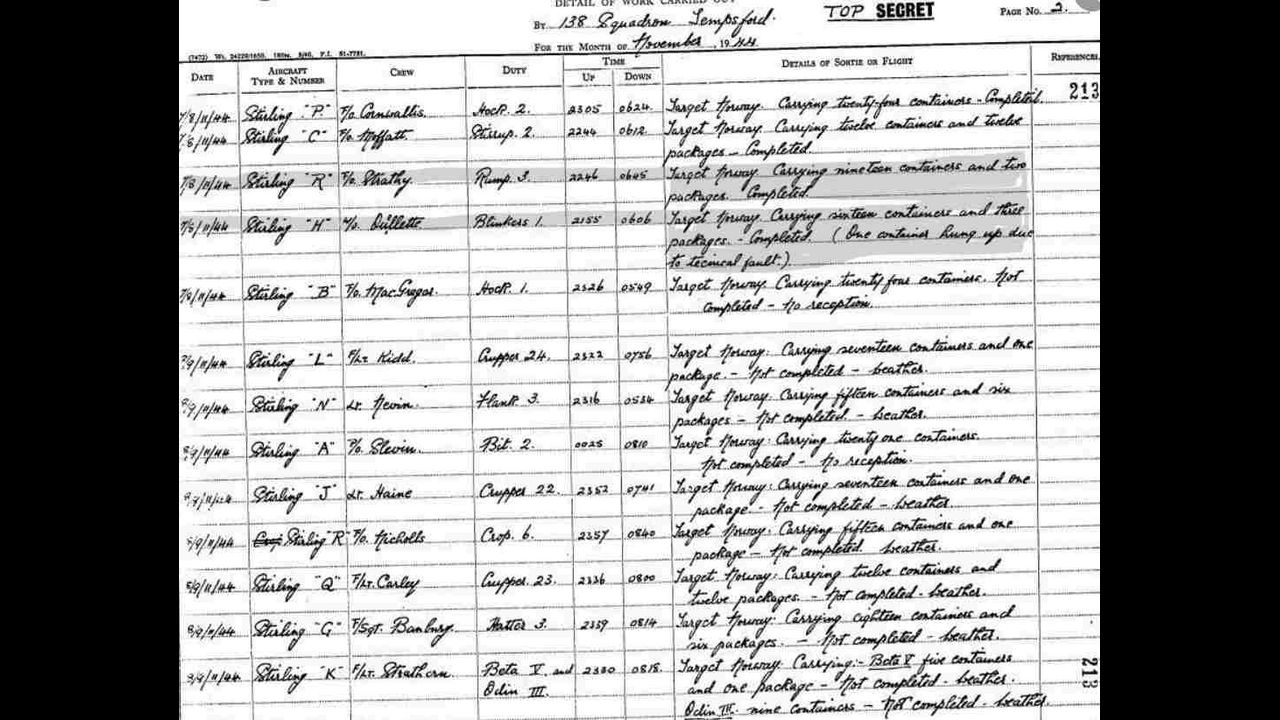 DETAIL OF WORK CARRIED OUT
BY 138 Squadron Tempsford.
TOP SECRET
PAGE No. 2.
FOR THE MONTH OF November, 1944
DATE AIRCRAFT TYPE & NUMBER CREW DUTY TIME UP DOWN DETAILS OF SORTIE OR FLIGHT REFERENCES
213
7/8/11/44 Stirling "P" F/O. Cornwallis. Hock. 2. 2305 0624 Target Norway. Carrying twenty-four containers - Completed.
7/8/11/44 Stirling "C" F/O. Moffatt. Stirrup. 2. 2244 0612 Target Norway. Carrying twelve containers and twelve
packages - Completed.
7/8/11/44 Stirling "R" F/O. Strathy. Rump. 3. 2246 0645 Target Norway. Carrying nineteen containers and two
packages. Completed.
7/8/11/44 Stirling "H" Oullette. Blinkers 1. 2155 0606 Target Norway. Carrying sixteen containers and three
packages. - Completed. (One container hung up due
to tecnical fault.)
7/8/11/44 Stirling "B" F/O. MacGregor. Hock. 1. 2326 0549 Target Norway. Carrying twenty four containers. Not
completed - No reception.
8/9/11/44 Stirling "L" F/Lt. Kidd. Crupper 24. 2322 0756 Target Norway: Carrying seventeen containers and one
package. - Not completed - weather.
8/9/11/44 Stirling "N" Lt. Nevin. Flank 3. 2316 0534 Target Norway: Carrying fifteen containers and six
packages - Not completed. - weather.
8/9/11/44 Stirling "A" F/O. Slevin. Bit. 2. 0025 0810 Target Norway: Carrying twenty one containers.
Not completed - No reception.
8/9/11/44 Stirling "J" Lt. Haine Crupper 22. 2352 0741 Target Norway: Carrying seventeen containers and one
package - Not completed - weather.
8/9/11/44 Stirling "R" F/O. Nicholls Crop. 6. 2357 0840 Target Norway: Carrying fifteen containers and one
package - Not completed. weather.
8/9/11/44 Stirling "Q" F/Lt. Carley Crupper. 23. 2336 0800 Target Norway: Carrying twelve containers and
twelve packages. - Not completed - weather.
8/9/11/44 Stirling "G" F/Sgt. Banbury. 3. 2359 0814 Target Norway: Carrying eighteen containers and
six packages. - Not completed - weather.
8/9/11/44 Stirling "K" F/Lt. Strathern. Beta V and 2330 0818. Target Norway. Carrying:- Beta V five containers
Odin III. and one package - Not completed - weather.
Odin III. nine containers - Not completed - weather.
213